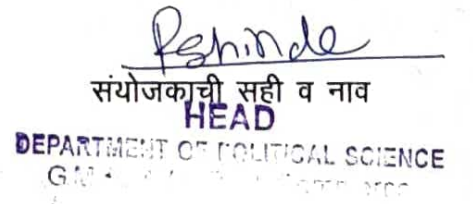 Pshinde
संयोजकाची सही व नाव
HEAD
DEPARTMENT OF POLITICAL SCIENCE
G.M.